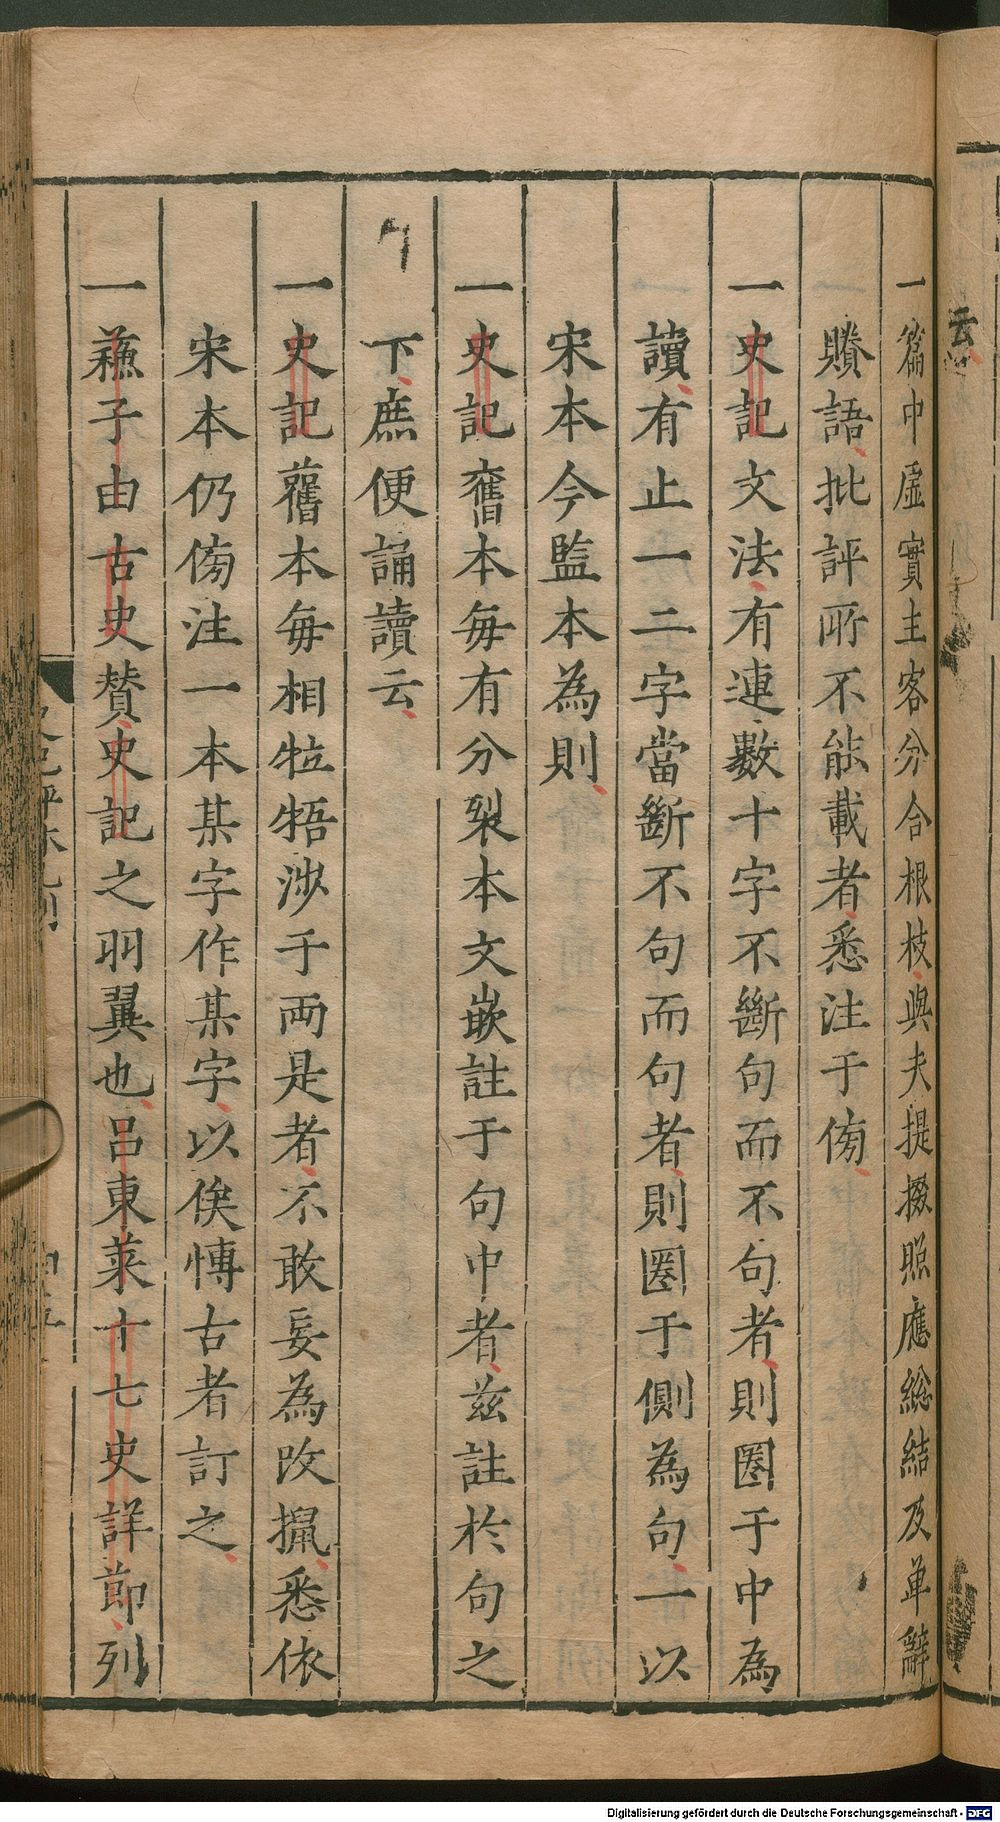 云
一篇中虛實主客分合根枝與夫提掇照應總結及单辭
賸語批評所不能載者悉注于傍
一史記文法有連數十字不斷句而不句者則圈于中為
讀有止一二字當斷不句而句者則圈于側為句一以
宋本今監本為則
一史記舊本每有分裂本文嵌註于句中者兹註於句之
下庶便誦讀云
一史記舊本每相牴牾涉于兩是者不敢妄為改攛悉依
宋本仍傍注一本某字作某字以俟博古者訂之
一蘓子由古史贊史記之羽翼也吕東萊十七史詳節列
Digitalisierung gefördert durch die Deutsche Forschungsgemeinschaft - DFG